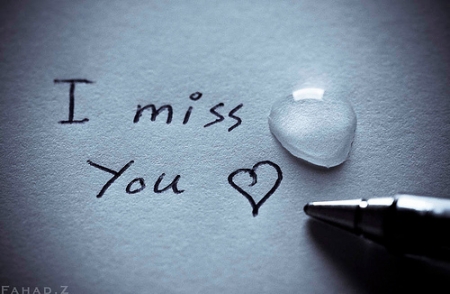 I miss
You ♡
FAHAD.Z